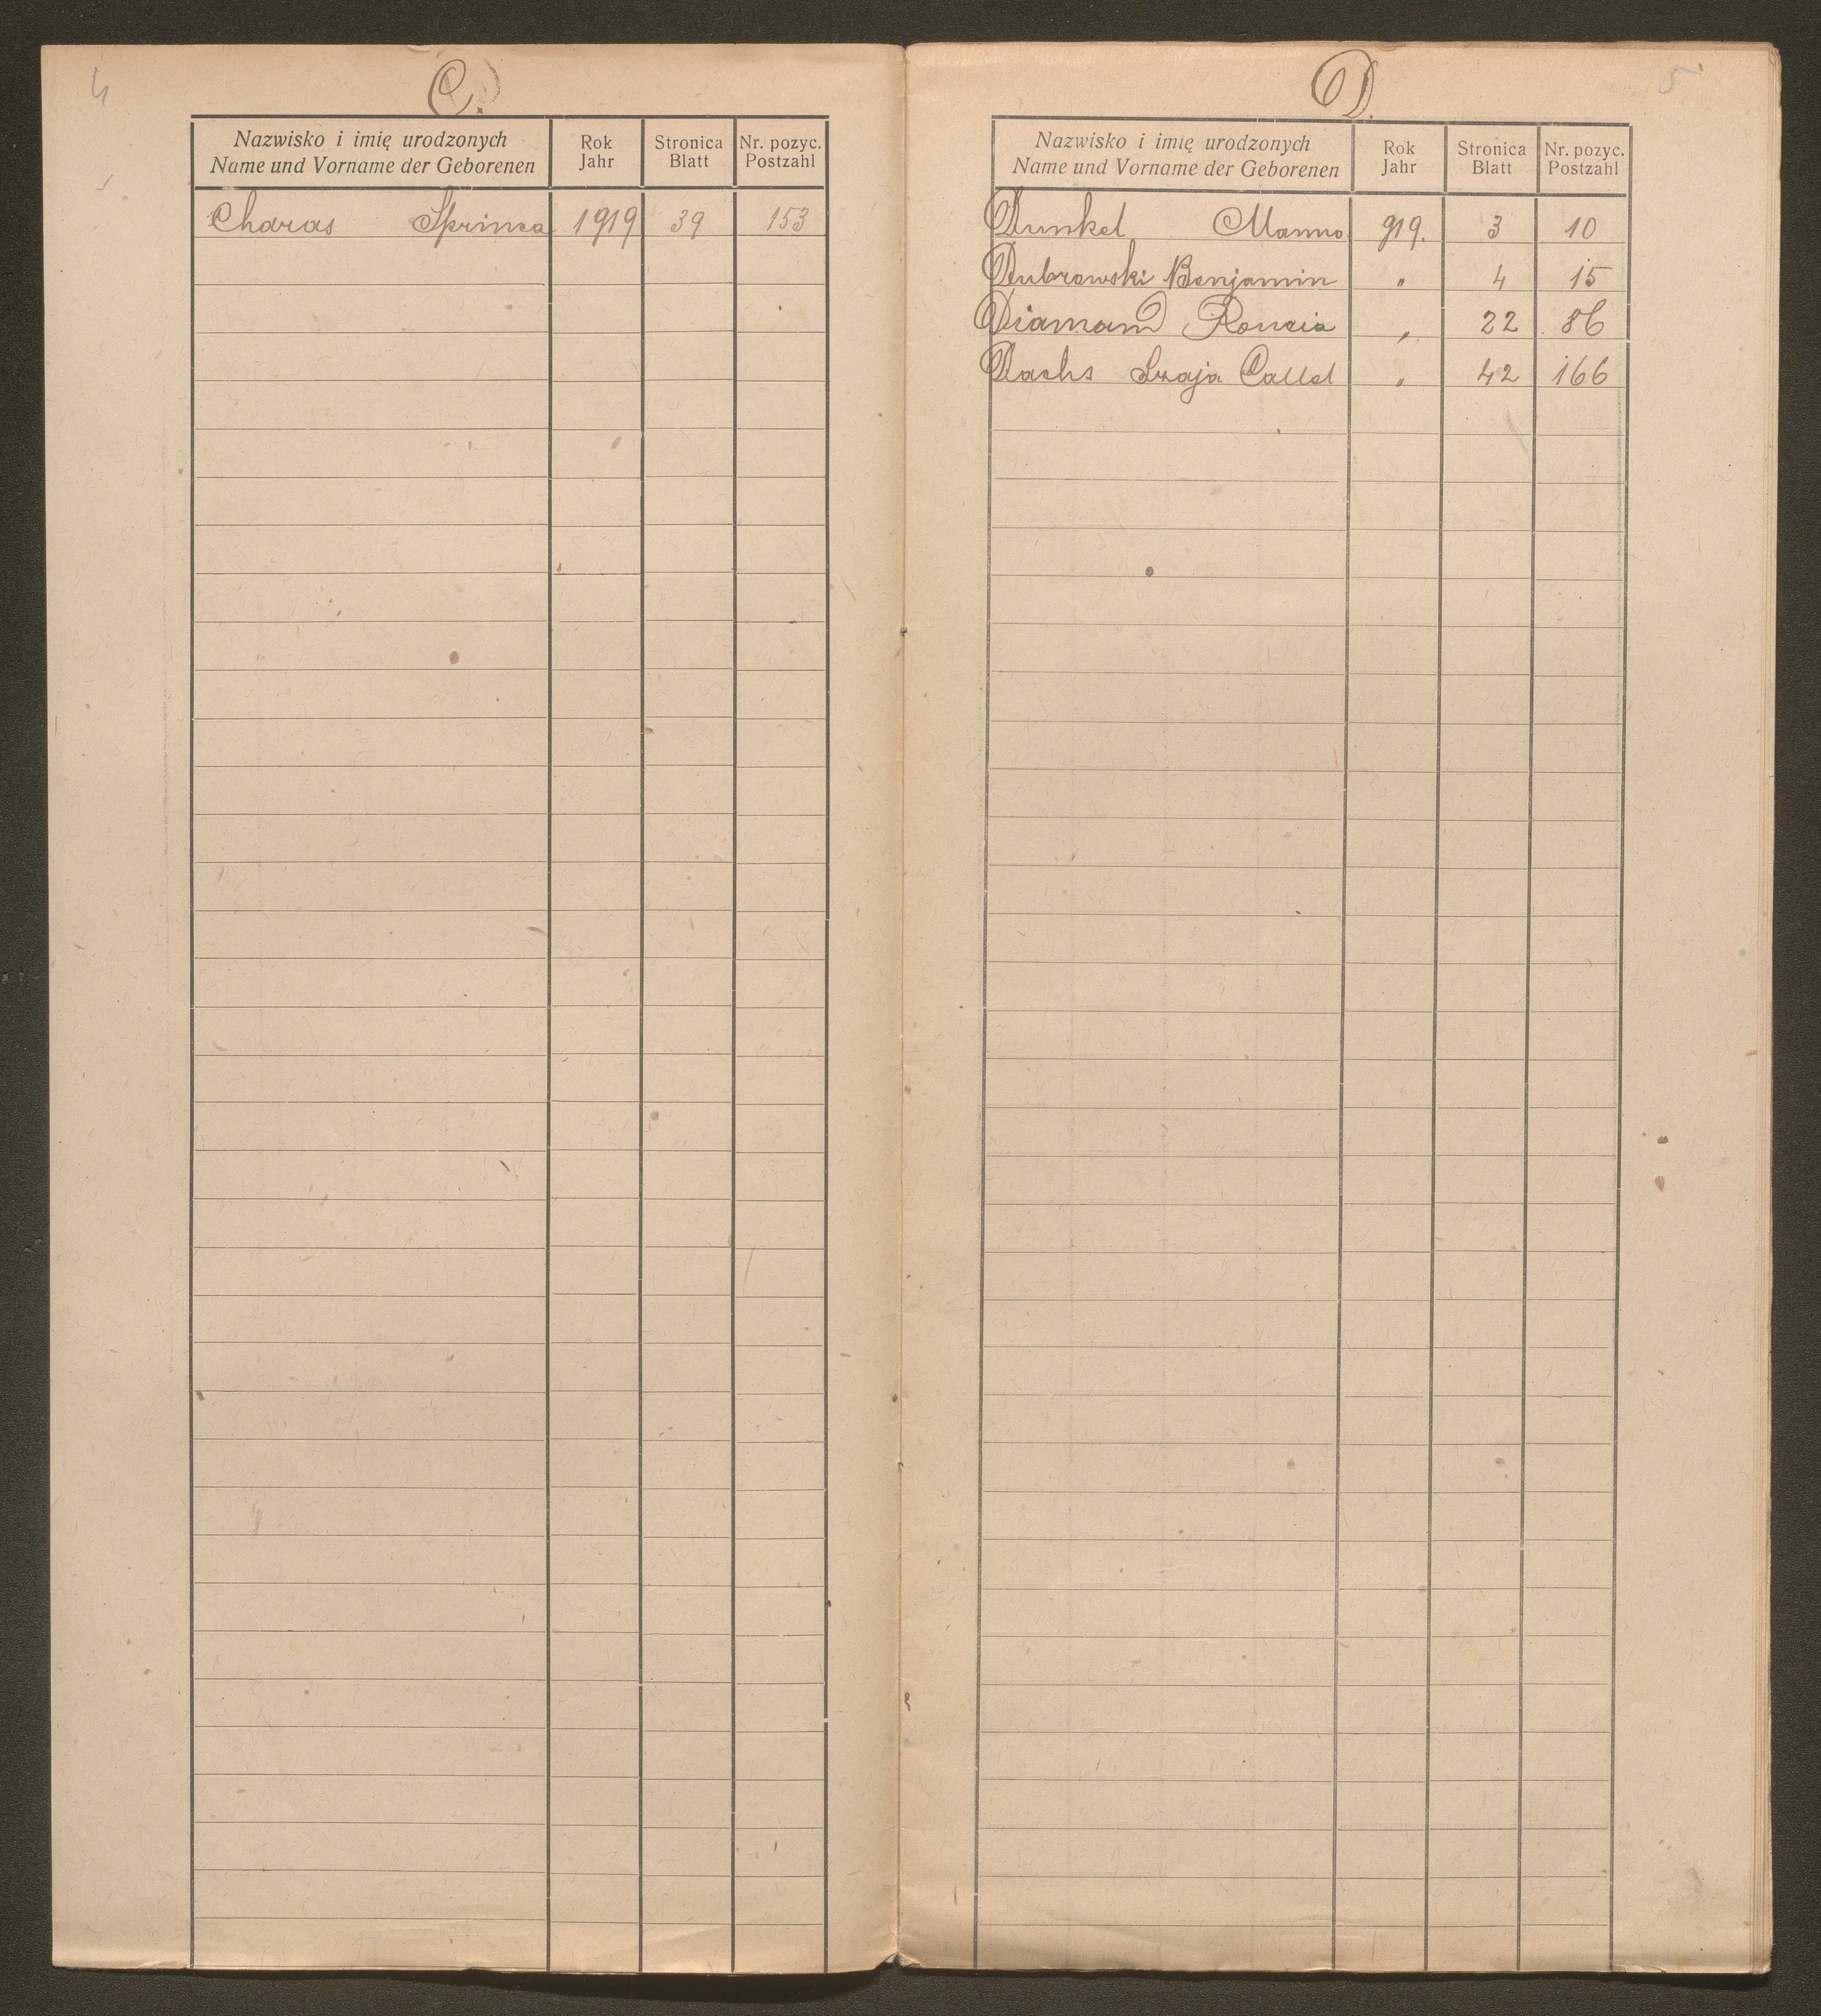 4
C.
Nazwisko i imię urodzonych
Name und Vorname der Geborenen
Rok
Jahr
Stronica
Blatt
Nr. pozyc.
Postzahl
Charas Sprinca 1919 39 153
5
D.
Nazwisko i imię urodzonych
Name und Vorname der Geborenen
Rok
Jahr
Stronica
Blatt
Nr. pozyc.
Postzahl
Dunkel Manno 919. 3 10
Dubrowski Benjamin " 4 15
Diamand " 22 86
Dachs Szaja " 42 166